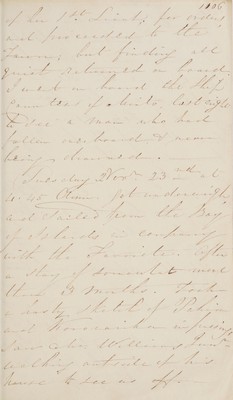 1106
of her 1st Lieut, for orders
and proceeded to the
Town, but finding all
quiet returned on board.
I went on board the Ship
Countess of Minto, last night
to see a man who had
fallen overboard & near
being drowned.
Tuesday Novr 23rd at
4.45 A.m. got underweigh
and sailed from the Bay
of Islands in company
with the Favorite. After
a stay of somewhat more
than 3 months. Took
a sketch of Pahia
and Kororarika in passing
saw Williams
walking outside of his
house to see us off